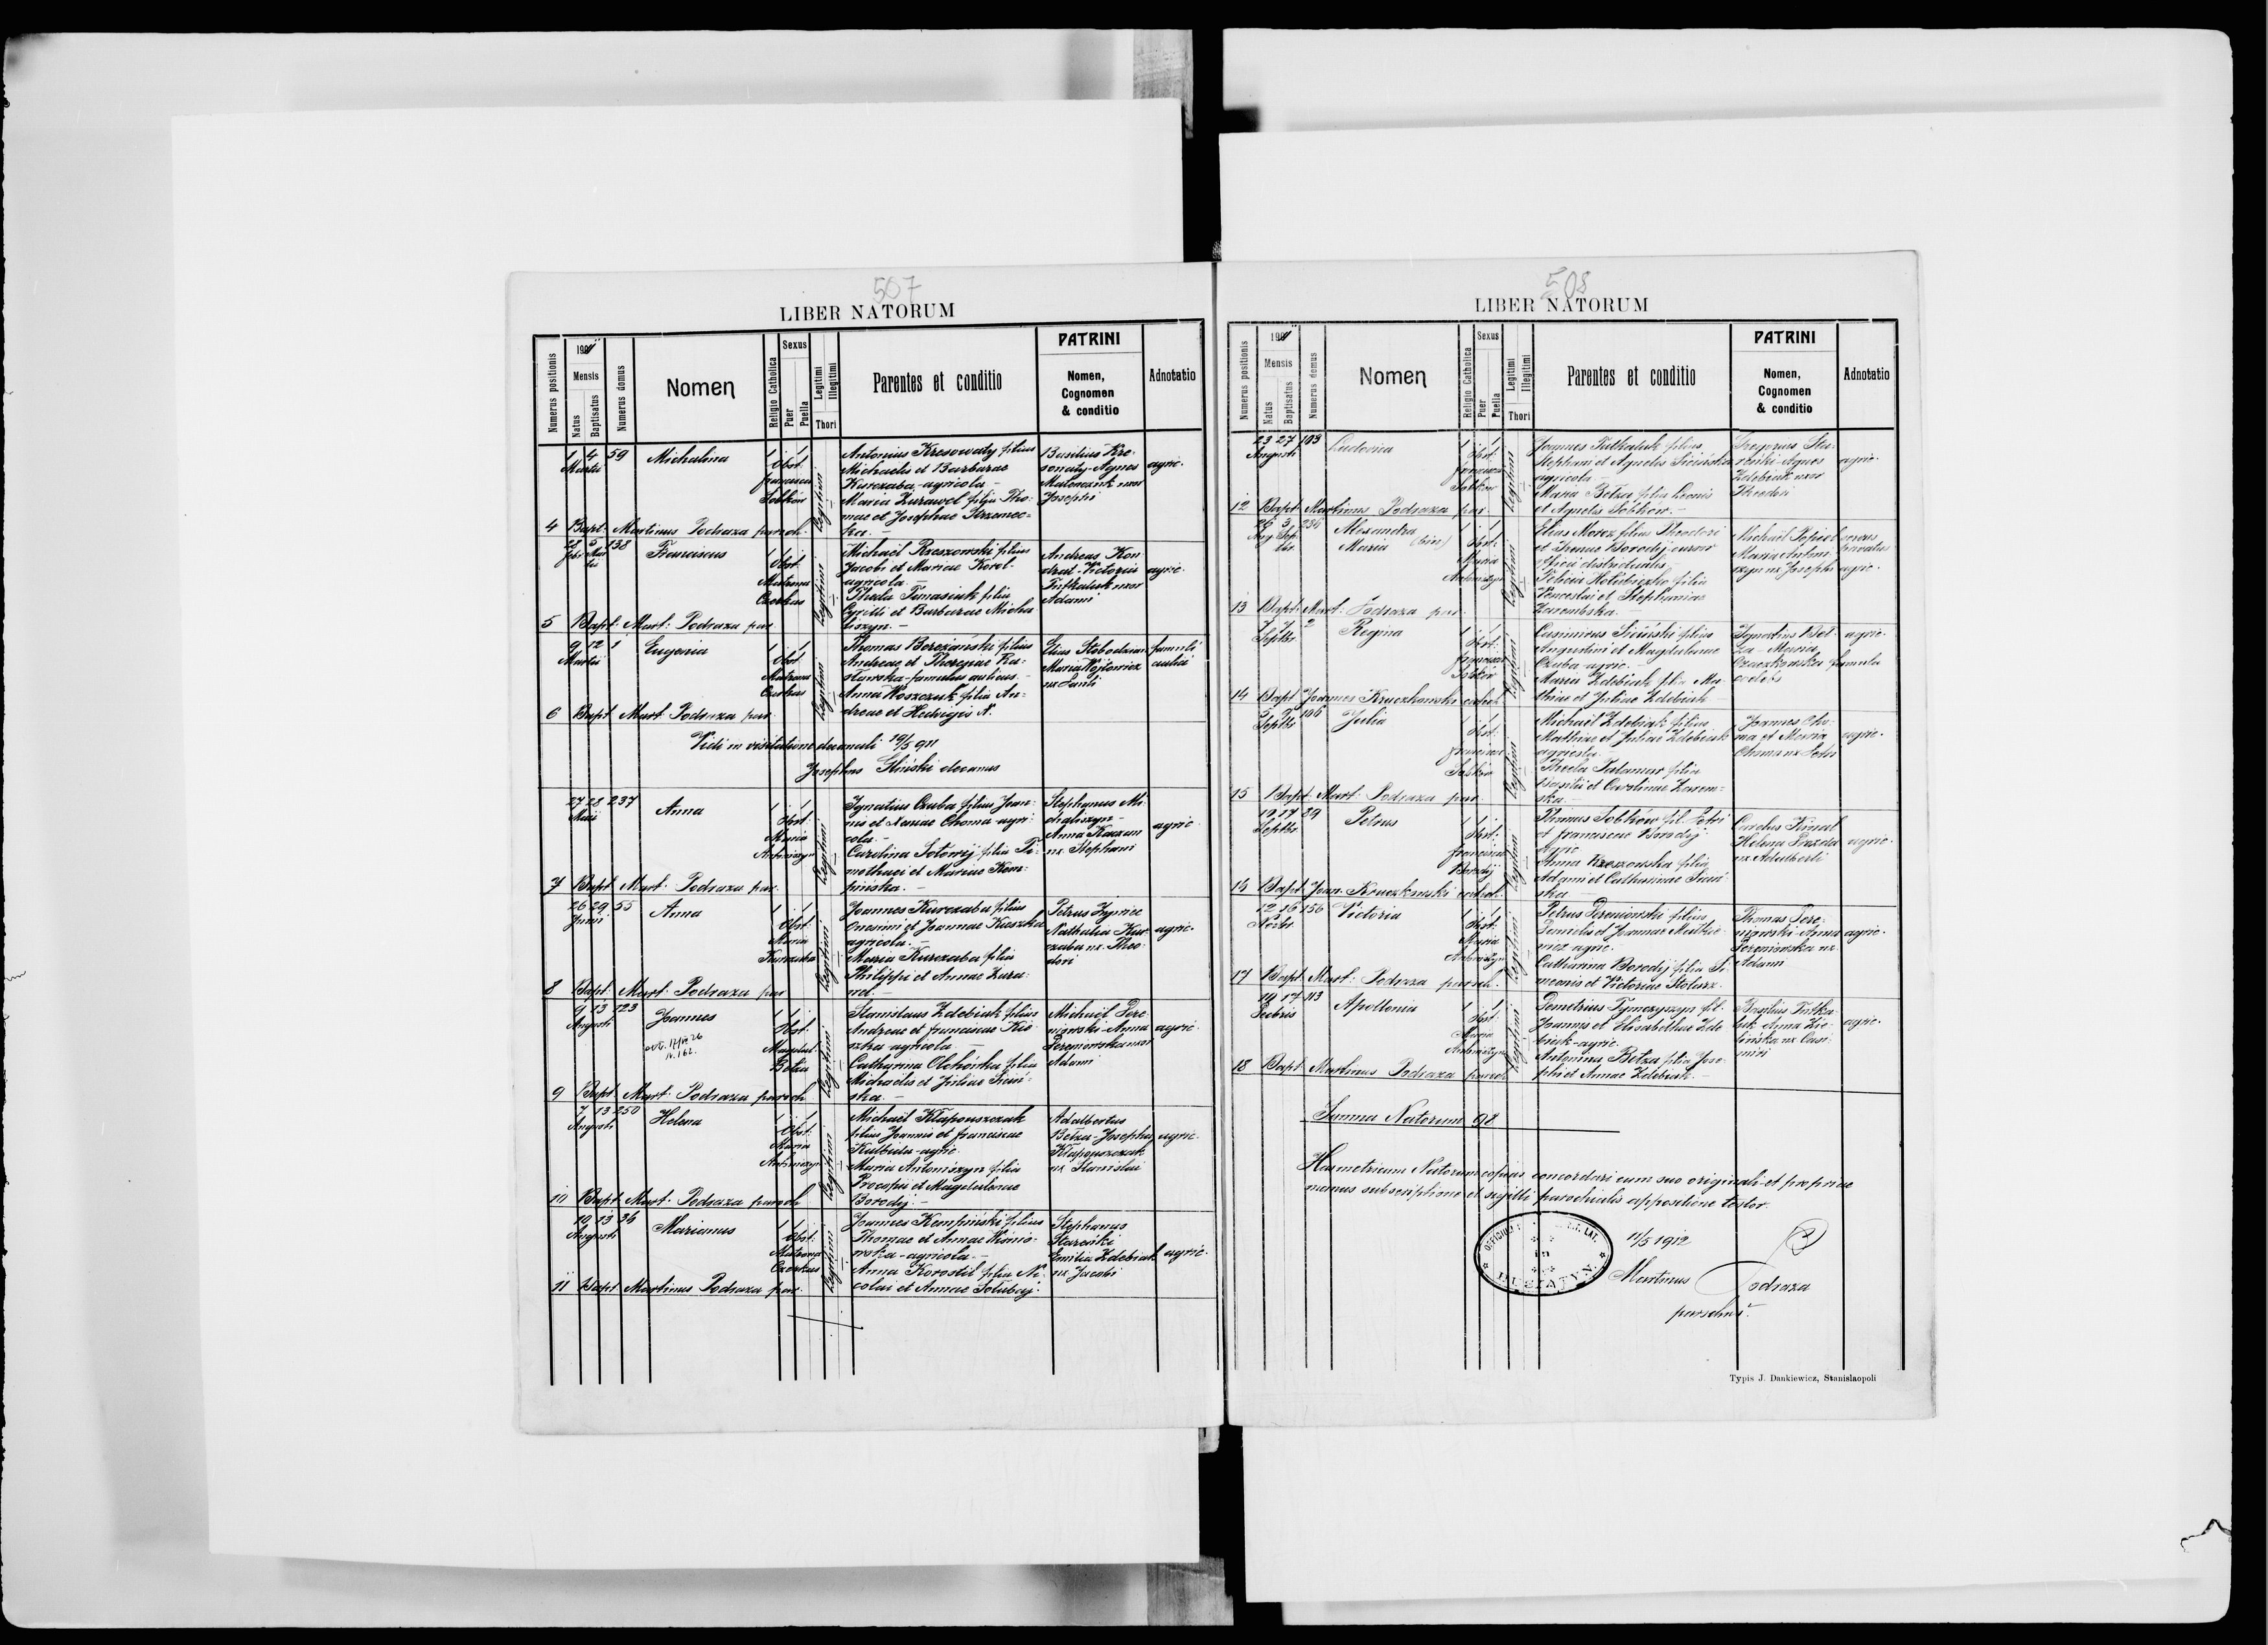 507
LIBER NATORUM
Numerus positionis
1911
Mensis
Natus
Baptisatus
Numerus domus
Nomen
Religio Catholica
Sexus
Puer
Puella
Legitimi
Illegitimi
Thori
Parentes et conditio
PATRINI
Nomen,
Cognomen
& conditio
Adnotatio
1 4 59 Michalina 1 1
Martii
Obst:
Francisca
Sobków
Legitimi
Antonius Kresowaty filius
Michaelis et Barbarae
Kurczaba - agricola -
Maria Zurawel filia Tho-
mae et Josephae Krzemec-
ka. -
Basilius Kre-
sowaty - Agnes
uxor
Josephi
agric.
4 Bapt. Martinus Podraza paroch.
28 5 138 Franciscus 1 1
Febr Mar
tii
Obst:
Matrona
Czerkas
Legitimi
Michaël Rzeszowski filius
Jacobi et Mariae Korol -
agricola. -
Thecla Tomasiuk filia
Cyrilli et Barbarae Micha
liszyn. -
Andreas Kon
drat - Victoria
uxor
Adami
agric.
5 Bapt. Mart: Podraza par.
9 12 1 Eugenia 1 1
Martii
Obst:
Matrona
Czerkas
Legitimi
Thomas Bereżański filius
Andreae et Theresiae Ra-
- famulus aulicus -
Anna Woszczuk filia An-
dreae et Hedvigis N.
Elias Słobodzian
Maria Wójtowicz
ux
famuli
aulici
6 Bapt. Mart: Podraza par.
Vidi in visitatione decanali 19/5 911
Josephus Gliński decanus
27 28 237 Anna 1 1
Maii
Obst:
Maria
Antoniszyn
Legitimi
Ignatius Czuba filius Joan-
nis et Choma - agri-
cola -
Carolina filia Ti-
mothaei et Mariae Kem-
pińska. -
Stephanus Mi-
chaliszyn -
Anna
ux Stephani
agric
7 Bapt. Mart: Podraza par.
26 29 55 Anna 1 1
Junii
Obst:
Maria
Kurczaba
Legitimi
Joannes Kurczaba filius
Onesimi et Joannae Kieszka
agricola. -
Maria Kurczaba filia
Philippi et Annae Zura-
wel. -
Petrus
Nathalia Kur-
czaba ux. Theo-
dori
agric.
8 Bapt. Mart: Podraza par
9 13 123 Joannes 1 1
Augusti
N. 162.
Obst:
Magdal.
Bełza
Legitimi
Stanislaus Zdebiak filius
Andreae et Franciscae Kie-
szka - agricola -
Catharina filia
Michaëlis et Juliae Siciń-
ska. -
Michaël Dere
niowski - Anna
Dereniowska uxor
Adami
agric.
9 Bapt. Mart: Podraza paroch.
7 13 250 Helena 1 1
Augusti
Obst:
Maria
Antoniszyn
Legitimi
Michaël Kłapouszczak
filius Joannis et Franciscae
- agric.
Maria Antoniszyn filia
Procopii et Magdalenae
Borodij. -
Adalbertus
Bełza - Josepha
Kłapouszczak
ux Stanislai
agric.
10 Bapt. Mart: Podraza paroch
10 13 36 Marianus 1 1
Augusti
Obst:
Matrona
Czerkas
Legitimi
Joannes Kempiński filius
Thomae et Annae Wiśnio-
wska - agricola -
Anna Korostil filia Ni-
colai et Annae
Stephanus
Emilia Zdebiak
ux Jacobi
agric.
11 Bapt. Martinus Podraza par.
508
LIBER NATORUM
Numerus positionis
1911
Mensis
Natus
Baptisatus
Numerus domus
Nomen
Religio Catholica
Sexus
Puer
Puella
Legitimi
Illegitimi
Thori
Parentes et conditio
PATRINI
Nomen,
Cognomen
& conditio
Adnotatio
23 27 103 Ludovica 1 1
Augusti
Obst:
Francisca
Sobków
Legitimi
Joannes filius
Stephani et Agnetis Sicińska
agricola -
Maria Bełza filia Leonis
et Agnetis Sobków. -
Gregorius
- Agnes
Zdebiak uxor
Theodori
agric.
12 Bapt. Martinus Podraza par.
26 3 236 Alexandra 1 1
Aug Sep
tbr
Maria (bin)
Obst:
Maria
Antoniszyn
Legitimi
Elias Moroz filius Theodori
et Borodij cursor
officii districtualis
Felicia filia
Venceslai et Stephaniae
Zarembska. -
Michaël Popiel
privatus
Maria Antoni-
szyn ux Josephi agric.
13 Bapt. Mart: Podraza par
7 7 2 Regina 1 1
Septbr
Obst:
Francisca
Sobków
Legitimi
Casimirus Siciński filius
Augustini et Magdalenae
Czuba - agric. -
Maria Zdebiak filia Ma-
thiae et Juliae Zdebiak -
Ignatius Beł-
za - Maria
Czaczkowska famula
coelebs
agric.
14 Bapt. Joannes Kruczkowski catech.
5 9 196 Julia 1 1
Septbr
Obst:
Francisca
Sobków
Legitimi
Michaël Zdebiak filius
Mathiae et Juliae Zdebiak
agricola -
Thecla Palamar filia
Basilii et Carolinae Zarem-
ska -
Joannes Cho-
ma et Maria
Choma ux Petri
agric.
15 Bapt. Mart: Podraza par
10 17 89 Petrus 1 1
Septbr
Obst:
Francisca
Borodij
Legitimi
Sobków fil. Petri
et Franciscae Borodij
agric
Anna Rzeszowska filia
Adami et Catharinae
ska -
Carolus
Helena
ux Adalberti
agric.
16 Bapt. Joan. Kruczkowski catech.
12 16 156 Victoria 1 1
Novbr.
Obst:
Maria
Antoniszyn
Legitimi
Petrus Dereniowski filius
Danielis et Joannae
agric.
Catharina Borodij filia Si-
meonis et Victoriae Stolarz.
Thomas Dere-
niowski - Anna
Dereniowska ux.
Adami
agric.
17 Bapt. Mart: Podraza paroch.
10 17 113 Apollonia 1 1
Decbris
Obst:
Maria
Antoniszyn
Legitimi
Demetrius Tymczyszyn fil.
Joannis et Elisabethae Zde
biak - agric.
Antonina Bełza filia Jose-
phi et Annae Zdebiak. -
Basilius
Anna Zie-
lińska ux Casi-
miri
agric.
18 Bapt. Martinus Podraza paroch
Summa Natorum 98
Hanc metricam Natorum copiam concordari cum suo originali et propriae
manus subscriptione et sigilli parochialis appositione testor.
11/5 1912
Martinus Podraza
parochus.
OFFICIUM LAT.
HUSIATYN
Typis J. Dankiewicz, Stanislaopoli